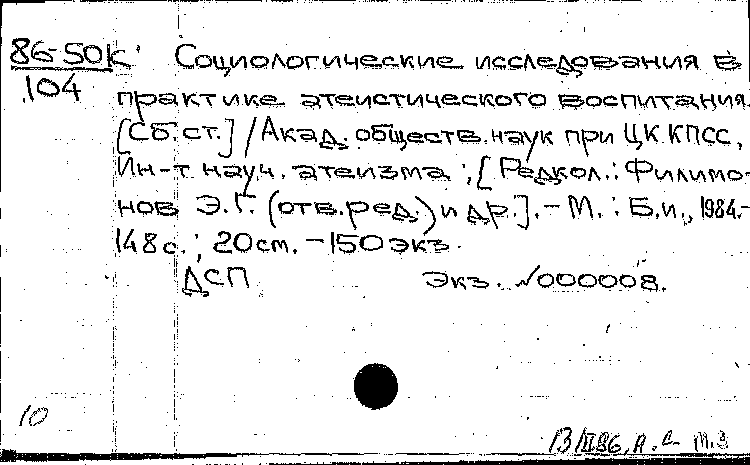 86-50К Социологические исследования в
104 практике атеистического воспитания.
[Сб.ст.] / Акад. обществ. наук при ЦК КПСС,
Ин-т науч. атеизма ; [Редкол.: Филимо-
нов Э.Г. (отв.ред.) и др.]. - М. : Б.и., 1984.-
148 с. ; 20 см. - 150 экз.
ДСП Экз. №000008.
10
13/II86,